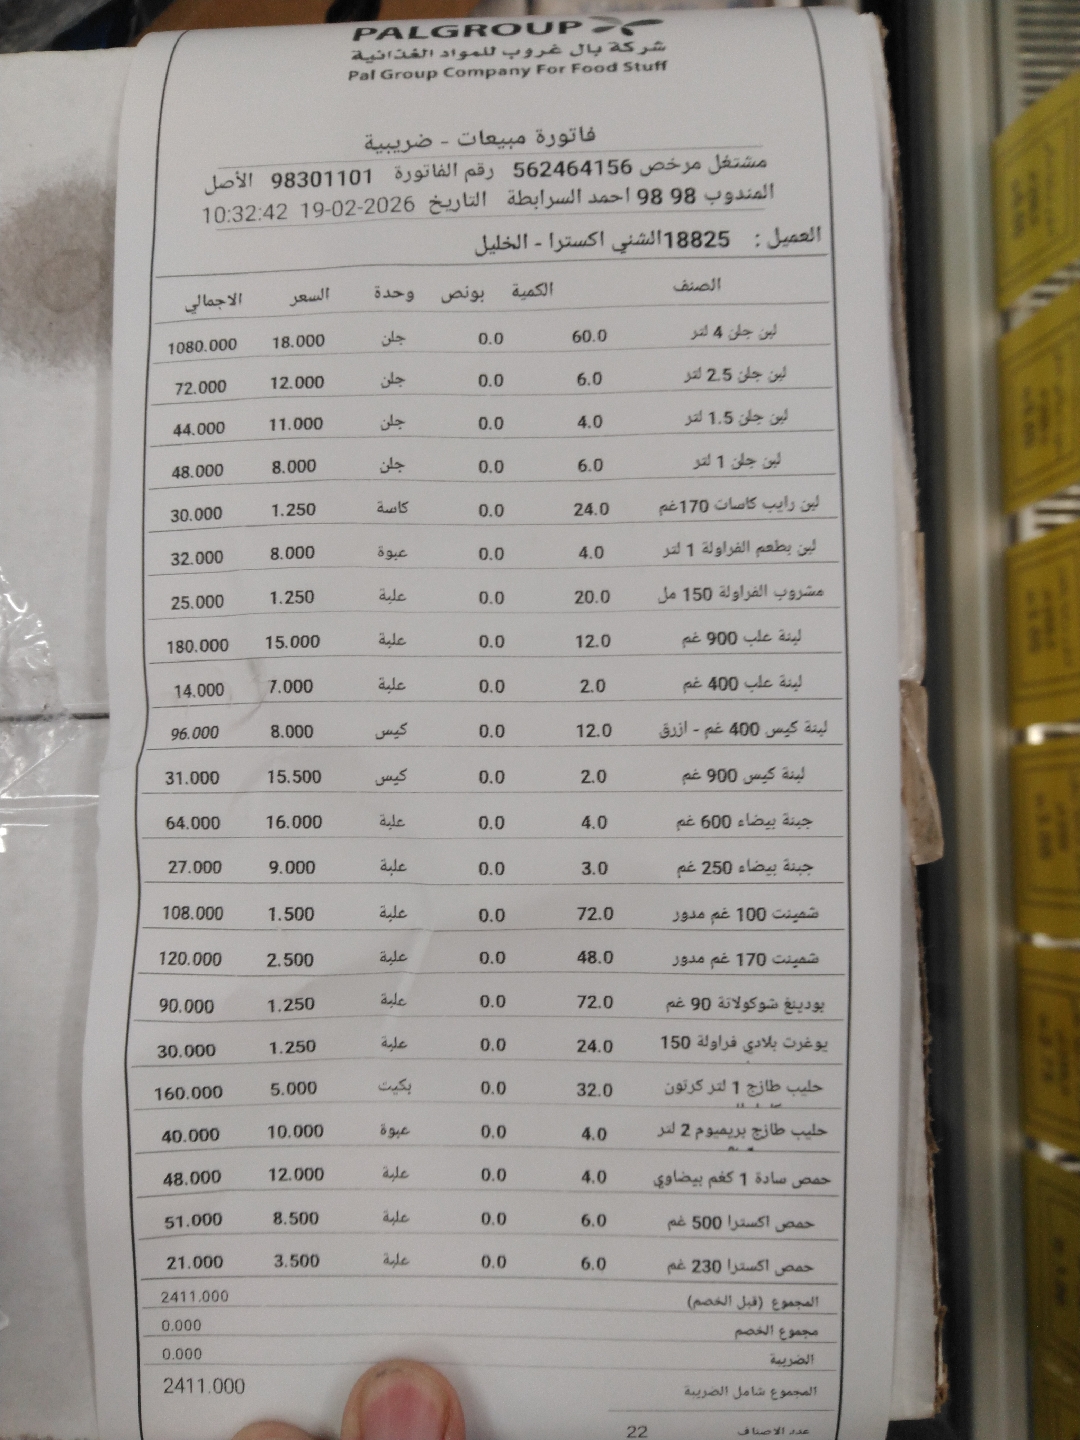 PALGROUP
شركة بال غروب للمواد الغذائية
Pal Group Company For Food Stuff
فاتورة مبيعات - ضريبية
مشتغل مرخص 562464156 رقم الفاتورة 98301101 الأصل
المندوب 98 98 احمد السرابطة التاريخ 19-02-2026 10:32:42
العميل : 18825الشني اكسترا - الخليل
الصنف الكمية بونص وحدة السعر الاجمالي
لبن جلن 4 لتر 60.0 0.0 جلن 18.000 1080.000
لبن جلن 2.5 لتر 6.0 0.0 جلن 12.000 72.000
لبن جلن 1.5 لتر 4.0 0.0 جلن 11.000 44.000
لبن جلن 1 لتر 6.0 0.0 جلن 8.000 48.000
لبن رايب كاسات 170غم 24.0 0.0 كاسة 1.250 30.000
لبن بطعم الفراولة 1 لتر 4.0 0.0 عبوة 8.000 32.000
مشروب الفراولة 150 مل 20.0 0.0 علبة 1.250 25.000
لبنة علب 900 غم 12.0 0.0 علبة 15.000 180.000
لبنة علب 400 غم 2.0 0.0 علبة 7.000 14.000
لبنة كيس 400 غم - ازرق 12.0 0.0 كيس 8.000 96.000
لبنة كيس 900 غم 2.0 0.0 كيس 15.500 31.000
جبنة بيضاء 600 غم 4.0 0.0 علبة 16.000 64.000
جبنة بيضاء 250 غم 3.0 0.0 علبة 9.000 27.000
شمينت 100 غم مدور 72.0 0.0 علبة 1.500 108.000
شمينت 170 غم مدور 48.0 0.0 علبة 2.500 120.000
بودينغ شوكولاتة 90 غم 72.0 0.0 علبة 1.250 90.000
يوغرت بلادي فراولة 150 24.0 0.0 علبة 1.250 30.000
حليب طازج 1 لتر كرتون 32.0 0.0 بكيت 5.000 160.000
حليب طازج بريميوم 2 لتر 4.0 0.0 عبوة 10.000 40.000
حمص سادة 1 كغم بيضاوي 4.0 0.0 علبة 12.000 48.000
حمص اكسترا 500 غم 6.0 0.0 علبة 8.500 51.000
حمص اكسترا 230 غم 6.0 0.0 علبة 3.500 21.000
المجموع (قبل الخصم) 2411.000
مجموع الخصم 0.000
الضريبة 0.000
المجموع شامل الضريبة 2411.000
عدد الاصناف 22